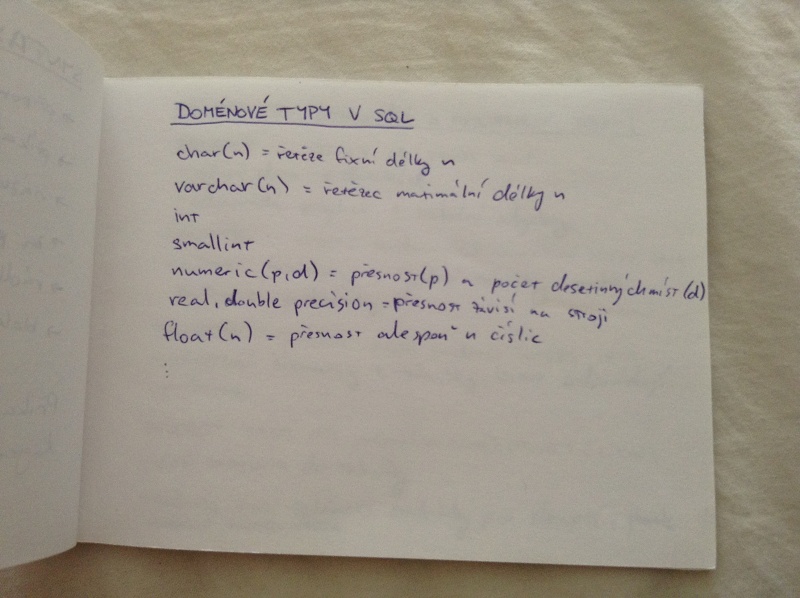 DOMÉNOVÉ TYPY V SQL
char(n) = řetěze fixní délky n
varchar(n) = řetězec maximální délky n
int
smallint
numeric(p,d) = přesnost(p) a počet desetinných míst(d)
real, double precision = přesnost závisí na stroji
float(n) = přesnost alespoň n číslic
⋮